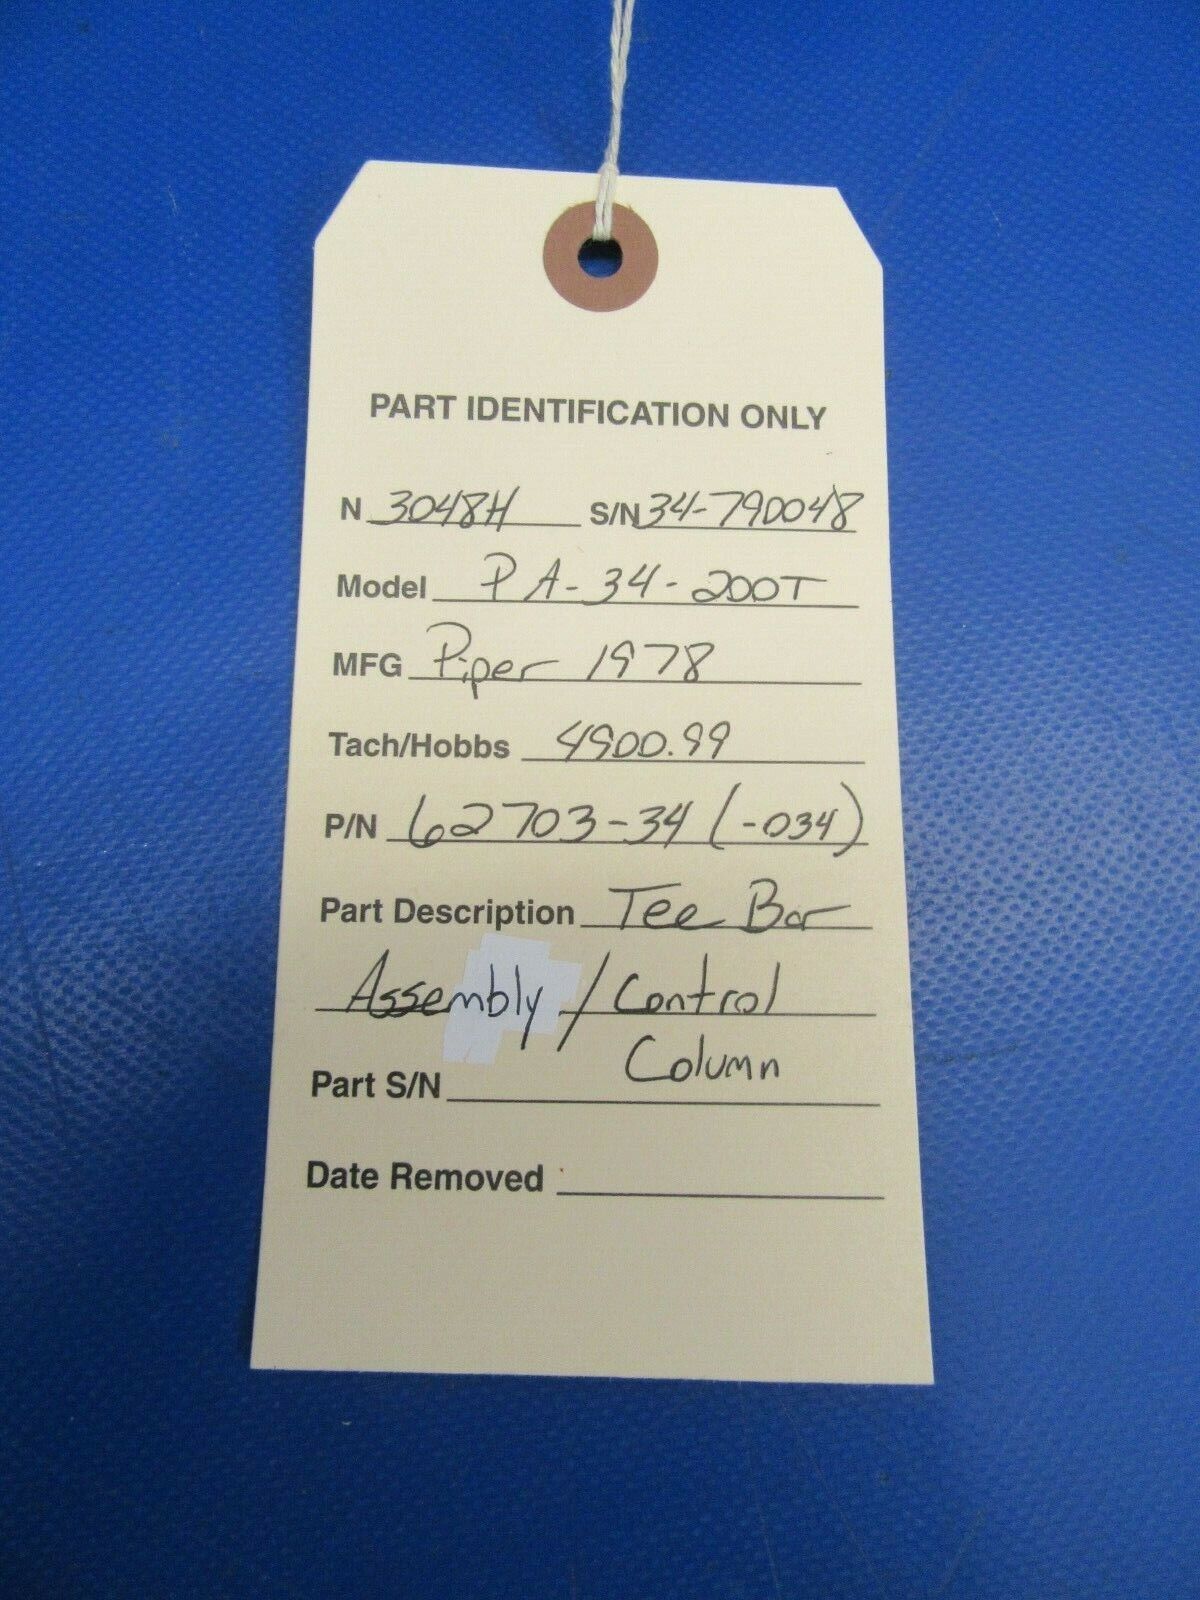 PART IDENTIFICATION ONLY
N 3048H S/N 34-790048
Model PA-34-200T
MFG Piper 1978
Tach/Hobbs 4900.99
P/N 62703-34 (-034)
Part Description Tee Bar
Assembly / Control
Column
Part S/N
Date Removed